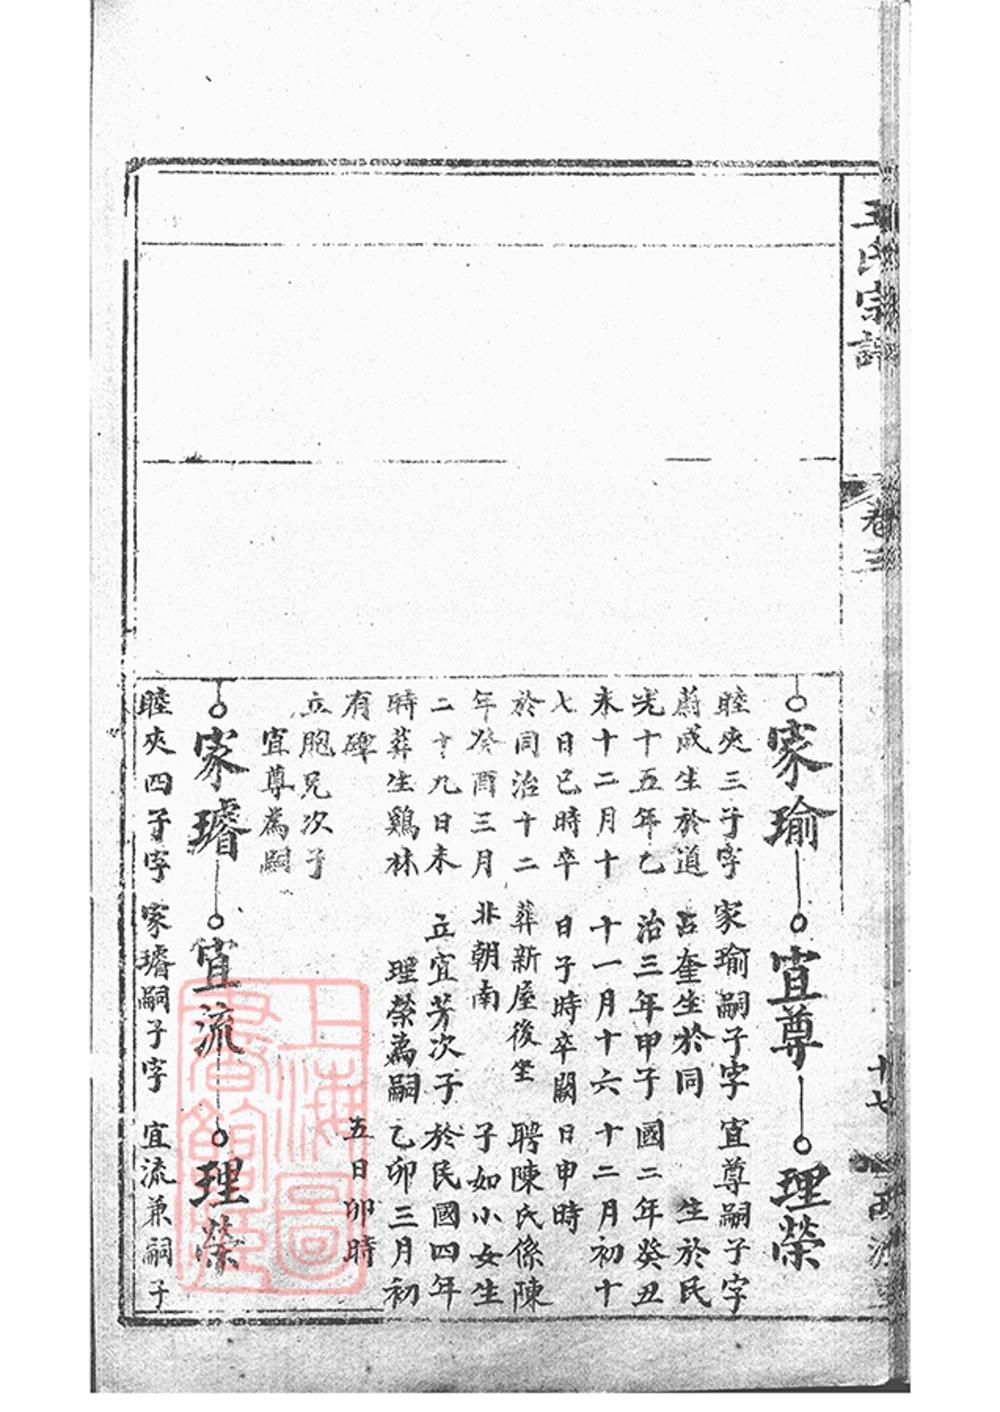 王氏宗譜
卷三
十七
家瑜
宜尊
理榮
睦夾三子字
蔚成生於道
光十五年乙
未十二月十
七日巳時卒
於同治十二
年癸酉三月
二十九日未
時葬生鷄林
有碑
立胞兄次子
宜尊為嗣
家瑜嗣子字
占奎生於同
治三年甲子
十一月十六
日子時卒闕
葬新屋後坐
北朝南
立宜芳次子
理榮為嗣
宜尊嗣子字
生於民
國二年癸丑
十二月初十
日申時
聘陳氏係陳
子如小女生
於民國四年
乙卯三月初
五日卯時
家璿
宜流
理榮
睦夾四子字
家璿嗣子字
宜流兼嗣子
上海圖
書館藏